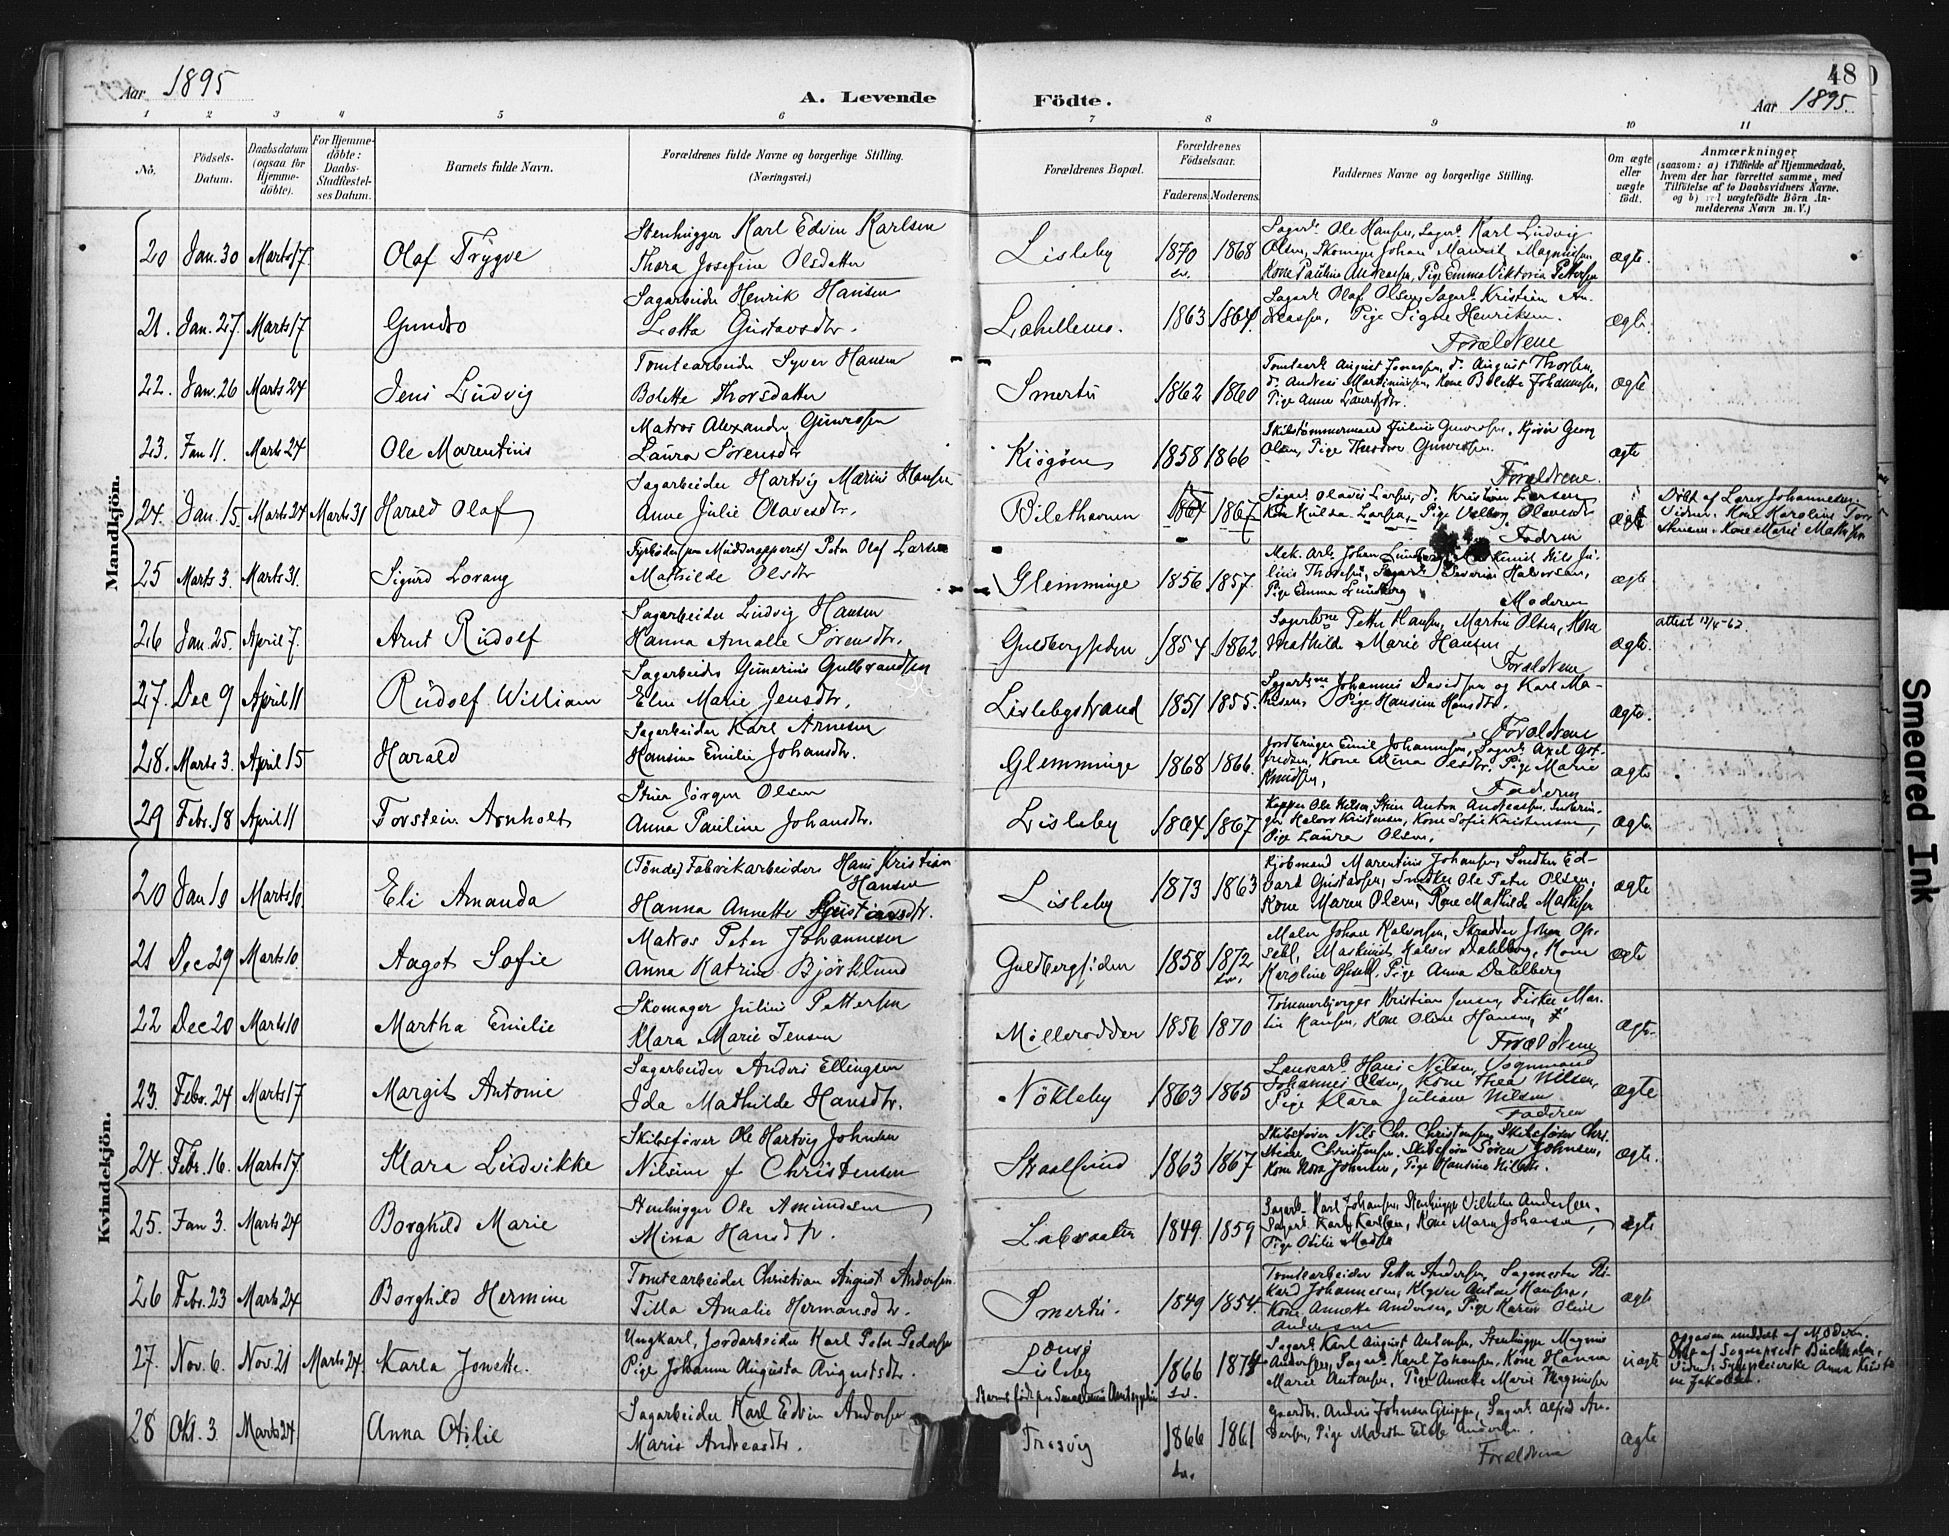 Aar 1895
A. Levende Födte.
48
Aar 1895.
1 2 3 4 5 6 7 8 9 10 11
No.
Födsels-Datum.
Daabsdatum (ogsaa for Hjemmedöbte).
For Hjemmedöbte: Daabs-Stadfæstelses Datum.
Barnets fulde Navn.
Forældrenes fulde Navne og borgerlige Stilling. (Næringsvei.)
Forældrenes Bopæl.
Forældrenes Födselsaar.
Faderens. Moderens.
Faddernes Navne og borgerlige Stilling.
Om ægte eller uægte födt.
Anmærkninger
(saasom: a) i Tilfælde af Hjemmedaab, hvem der har forrettet samme, med Tilföielse af to Daabsvidners Navne, og b) ved uægtefödte Börn Anmelderens Navn m. V.)
Mandkjön.
20 Jan. 30 Marts 17. Olaf Trygve
Stenhugger Karl Edvin Karlsen
Thora Josefine Olsdatter
Lisleby 1870 1868
Sagarb. Ole Hansen, Sagarb. Karl Ludvig
Olsen, Skomager Johan
Kone Pauline Andreasen, Pige Emma Viktoria Pettersen
ægte.
21. Jan. 27 Marts 17 Gundro
Sagarbeider Henrik Hansen
Lotta Gustavsdtr.
1863 1864.
Sagarb. Olaf Olsen, Sagarb. Kristian An-
dreassen, Pige Signe Henriksen.
Forældrene
ægte.
22. Jan. 26 Marts 24 Jens Ludvig
Tomtearbeider Syver Hansen
Bolette Thorsdatter
Smertu 1862 1860
Tomtearb. August Jonassen, do. August Thorsen,
do. Andreas Martiniussen, Kone Bolette Johannesen,
Pige Anna Lauritzdtr.
ægte
23. Jan 11. Marts 24 Ole Marentius
Matros Alexander Gunersen
Laura Sörensdtr
Kiøgøen 1858 1866
Skibstömmermand Julius Gunersen,
Forældrene.
ægte
24. Jan. 15 Marts 24 Marts 31 Harald Olaf
Sagarbeider Hartvig Marius Hansen
Anne Julie Olavesdtr.
1864 1867
Sagarb. Olaves Larsen, do. Kristian Larsen
Kone Hulda Larsen, Pige Valborg Olavesdtr
Fadren
ægte
Döbt af Lærer Johannesen.
Vidner: Kone Karoline Tor-
stensen. Kone Marie Mathisen
25 Marts 3. Marts 31. Sigurd Lorang
Fyrböder (paa Mudderapparet) Peter Olaf Larsen
Mathilde Olsdtr
Glemminge 1856 1857.
Mek. Arb. Johan Lundberg, Maskinist Nils Ju-
lius Thoresen, Sagarb. Severin Halvorsen,
Pige Emma Lundberg
Moderen
ægte
26 Jan. 25. April 7. Arnt Rudolf
Sagarbeider Ludvig Hansen
Hanna Amalie Sörensdtr.
Guldbergsiden 1854 1862
Sagarberne Petter Hansen, Martin Olsen, Kone
Mathilde Marie Hansen
Forældrene
ægte.
attest 13/4-62.
27. Dec 9 April 11 Rudolf William
Sagarbeider Gunerius Gulbrandsen
Elen Marie Jensdtr.
Lislebystrand 1851 1855.
Sagarberne Johannes Davidsen og Karl Ma-
thisen, Pige Hansine Hansdtr.
Forældrene
ægte.
28. Marts 3. April 15 Harald
Sagarbeider Karl Arnesen
Hansine Emilie Johansdtr.
Glemminge 1868 1866.
Jordbruger Emil Johannesen, Sagarb. Axel Got-
fredsen, Kone Olsdtr. Pige Marie
Knudsen,
Faderen
ægte
29 Febr. 18 April 11 Torstein Arnholt
Stuer Jörgen Olsen
Anna Pauline Johansdtr.
Lisleby 1864 1867
Kapper Ole Nilsen, Stuer Anton Andreassen,
Halvor Kristensen, Kone Sofie Kristensen,
Pige Laura Olsen.
ægte
Kvindekjön.
20 Jan 10 Marts 10. Eli Amanda
(Tönde) Fabrikarbeider Hans Kristian
Hansen
Hanna Annette Kristiansdtr.
Lisleby 1873 1863
Kjöbmand Marentius Johansen, Snedker Ed-
vard Gustavsen, Snedker Ole Peter Olsen,
Kone Maren Olsen, Kone Mathilde Mathisen
ægte
21 Dec 29 Marts 10. Aagot Sofie
Matros Peter Johannesen
Anna Katrine Björklund
Guldbergsiden 1858 1872
Maler Johan Halvorsen, Skrædder Johan
Maskinist Halvor Dahlberg, Kone
Karoline Pige Anna Dahlberg
ægte
22 Dec 20 Marts 10 Martha Emilie
Skomager Julius Pettersen
Klara Marie Jensen
Möllerodden 1856 1870
Kristian Jensen, Fisker Mar-
tin Hansen, Kone Oline Hansen,
Forældrene
ægte.
23. Febr. 24 Marts 17 Margit Antonie
Sagarbeider Anders Ellingsen
Ida Mathilde Hansdtr.
Nökleby 1863 1865
Hans Nilsen, Vognmand
Johannes Olsen, Kone Thea Nilsen,
Pige Klara Juliane Nilsen
Faderen
ægte
24. Febr. 16. Marts 17. Klara Ludvikke
Skibsförer Ole Hartvig Johnsen
Nilsine f. Christensen
Straalsund 1863 1867
Skibsförer Nils Chr. Christensen, Skibsförer Chri-
stian Christensen, Skibsförer Sören Johnsen,
Kone Nora Johnsen, Pige Hansine Nilsen.
ægte.
25. Jan 3. Marts 24 Borghild Marie
Stenhugger Ole Amundsen
Mina Hansdtr.
Labraaten 1849. 1859
Sagarb. Karl Johansen, Stenhugger Vilhelm Andersen,
Sagarb. Karl Karlsen, Kone Maren Johansen,
Pige Otilie Madsen
ægte
26 Febr. 23 Marts 24 Borghild Hermine
Tomtearbeider Christian August Andersen
Tilla Amalie Hermansdtr.
Smertu. 1849 1854.
Tomtearbeider Petter Andersen, Sagmester Ri-
kard Johannesen, Klyver Anton Hansen,
Kone Annette Andersen, Pige Karen Oline
Andersen
ægte
27. Nov. 6. Nov. 21 Marts 24 Karla Jonette.
Ungkarl, Jordarbeider Karl Peter Pedersen
Pige Johanne Augusta Augustsdtr.
Lisleby 1866 1874
Sagarb. Karl August Antonsen, Stenhugger Magnus
Andersen, Sagarb. Karl Johansen, Kone Hanna
Marie Antonsen, Pige Annette Marie Magnussen
uægte
Opgaven meddelt af Moderen.
Döbt af Sogneprest Buchholm,
Vidner: Anna Kristi-
ne Jakobsen.
28 Okt. 3. Marts 24 Anna Otilie
Sagarbeider Karl Edvin Andersen
Marie Andreasdtr.
Barnet födt paa Smaalenenes Amtssygehus
Træsvig 1866 1861
Gaardbr. Anders Johnsen Sagarb. Alfred An-
dersen, Pige Andersen.
Forældrene
ægte
Smeared Ink